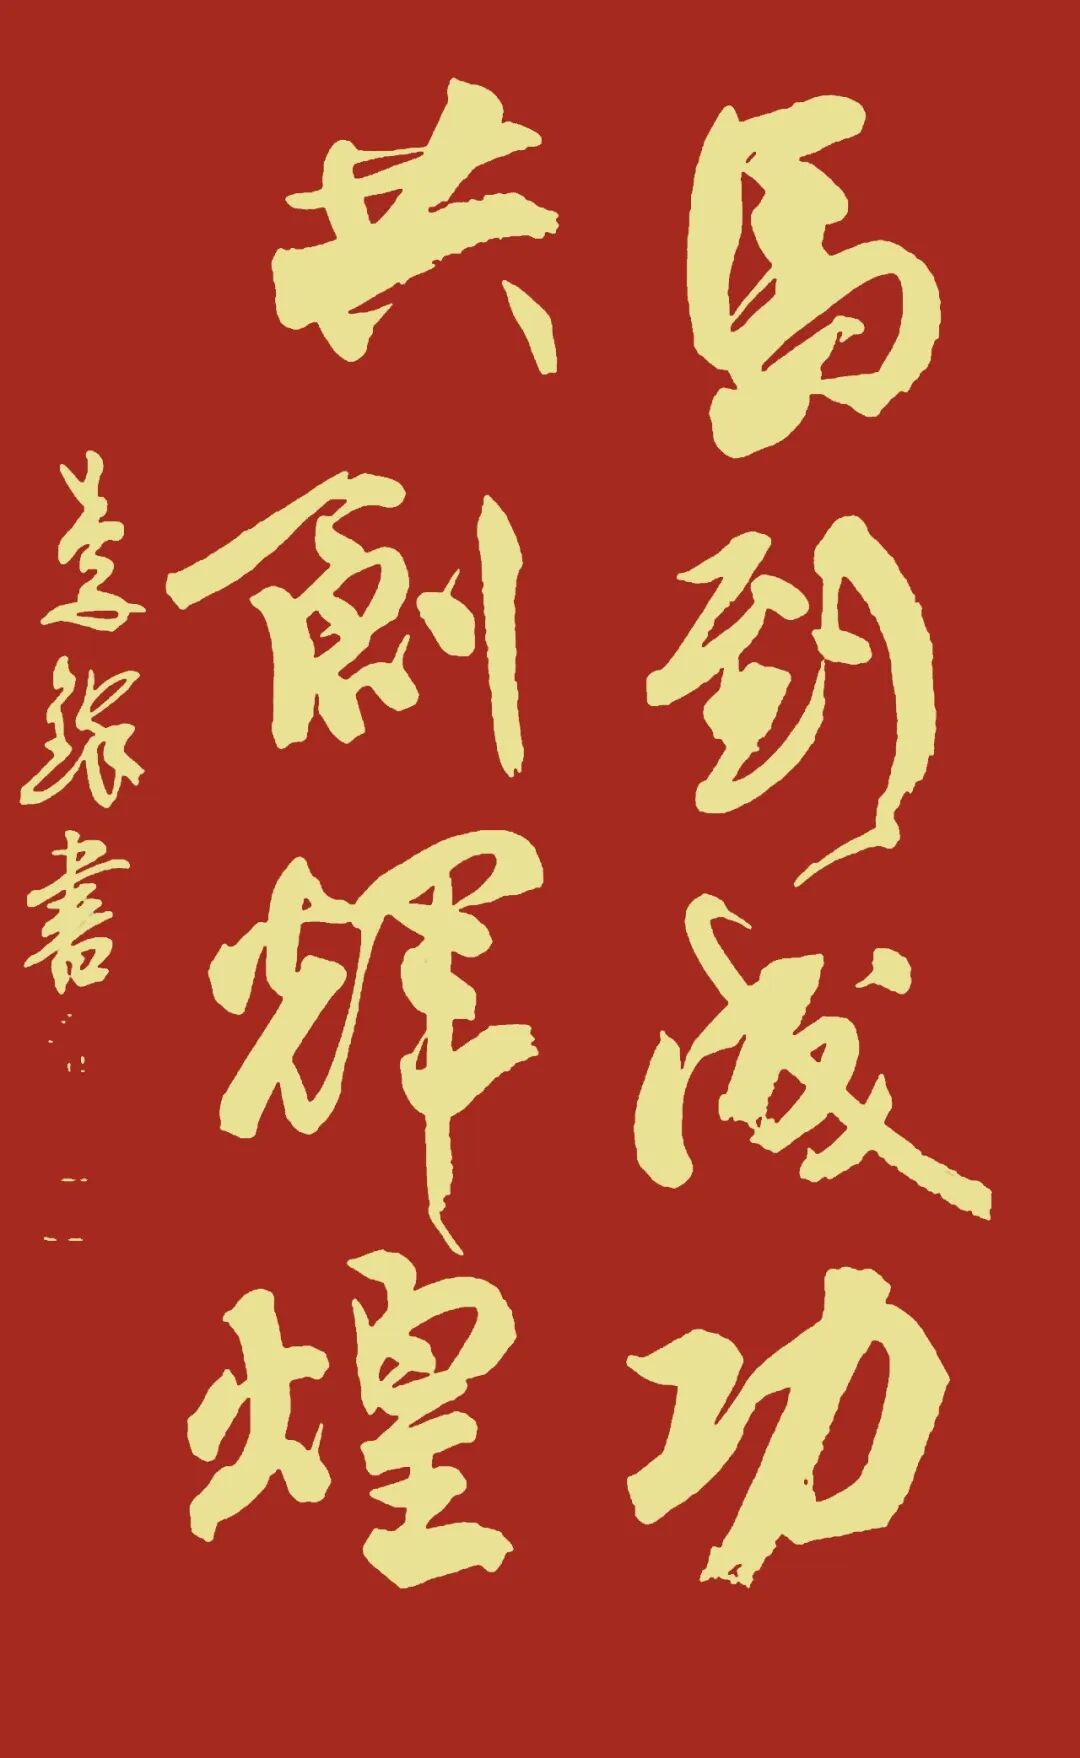 馬到成功
共創輝煌
書